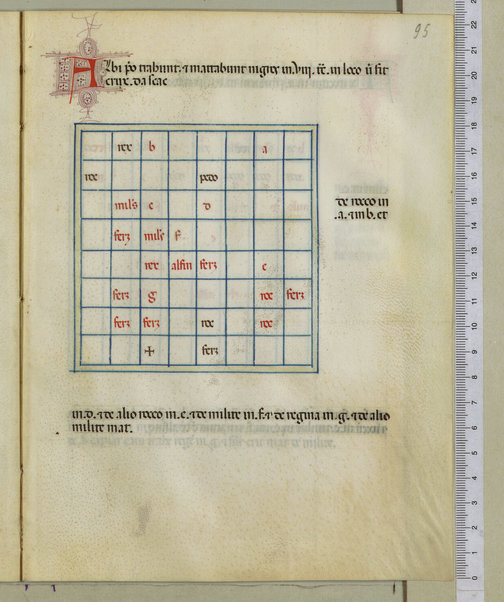 95
Albi p͛o trahunt. ⁊ mattabunt nigꝝ in.Viij. fc̄. in loco ū sit
crux. da scac
rex b a
roc pedo
mils c d
de rocco in
.a. ⁊ in b. et
ferz mils f
rex alfin ferz e
ferz g roc ferz
ferz ferz roc roc
ferz
in.d. ⁊ de alio rocco in.e. ⁊ de milite in.f. ⁊ de regina in.g. ⁊ de alio
milite mat.
22
21
20
19
18
17
16
15
14
13
12
11
10
9
8
7
6
5
4
3
2
1
0